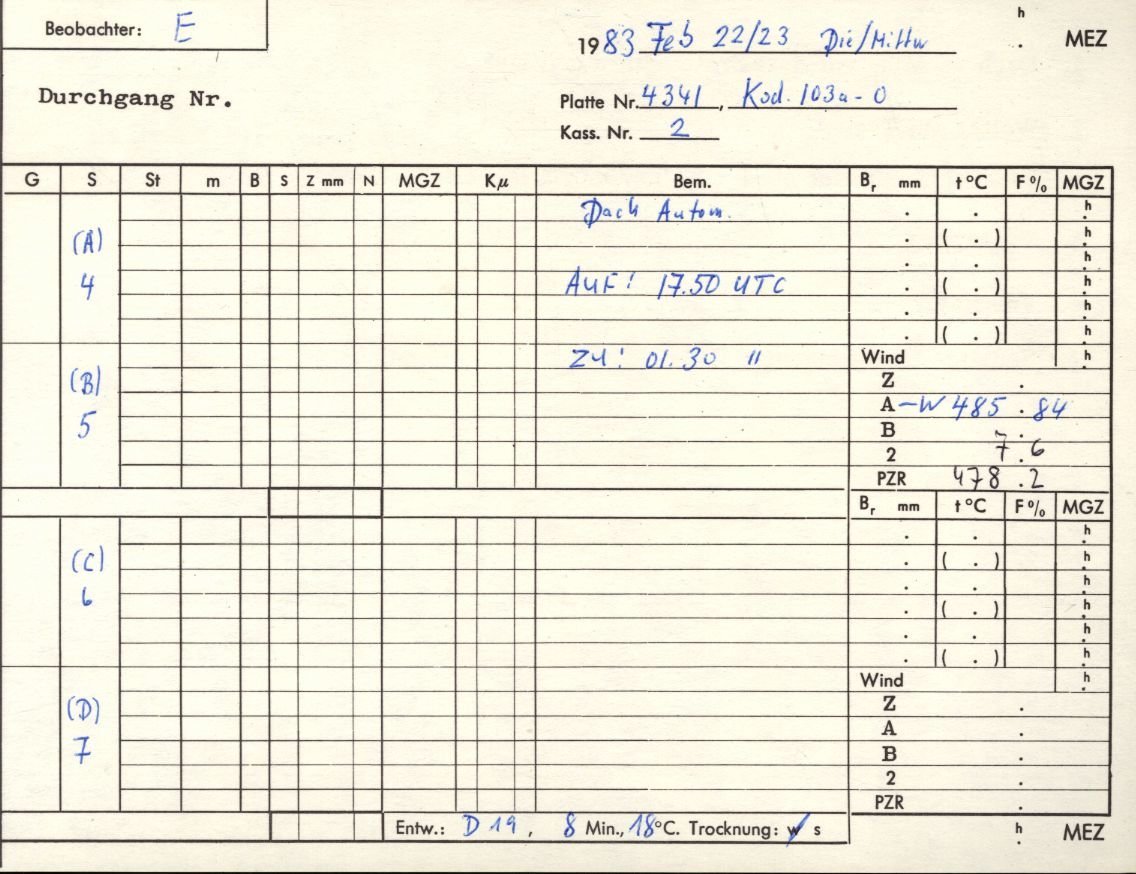 Beobachter: E
h
1983 Feb 22/23 Die/Mittw . MEZ
Durchgang Nr.
Platte Nr. 4341, Kod. 103a-O
Kass. Nr. 2
G S St m B S Z mm N MGZ Kμ Bem. Br mm t°C F% MGZ
Dach Autom. . . h
(A) . ( . ) h
. . h
4 AUF! 17.50 UTC . ( . ) h
. . h
. ( . ) h
ZU! 01.30 " Wind h
(B) Z .
A -W 485.84
5 B .
2 7.6
PZR 478.2
Br mm t°C F% MGZ
. . h
(C) . ( . ) h
. . h
6 . ( . ) h
. . h
. ( . ) h
Wind h
(D) Z .
A .
7 B .
2 .
PZR .
Entw.: D 19, 8 Min., 18°C. Trocknung: w s h
. MEZ